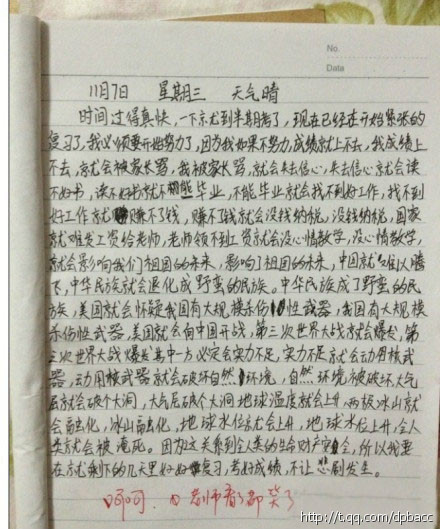 No.
Data
11月7日 星期三 天气晴
时间过得真快,一下就到半期考了,现在已经在开始紧张的
复习了,我必须要开始努力了,因为我如果不努力,成绩就上不去,我成绩上
不去,就会被家长骂,我被家长骂,就会失去信心,失去信心就会读
不好书,读不好书就不能毕业,不能毕业就会找不到好工作,找不到
好工作就赚不了钱,赚不了钱就会没钱纳税,没钱纳税,国家
就难发工资给老师,老师领不到工资就会没心情教学,没心情教学,
就会影响我们祖国的未来,影响了祖国的未来,中国就难以腾
飞,中华民族就会退化成野蛮的民族。中华民族成了野蛮的民
族,美国就会怀疑我国有大规模杀伤性武器,我国有大规模
杀伤性武器,美国就会向中国开战,第三次世界大战就会爆发,第
三次世界大战爆发其中一方必定会实力不足,实力不足就会动用核武
器,动用核武器就会破坏自然环境,自然环境被破坏大气
层就会破个大洞,大气层破个大洞地球温度就会上升,两极冰山就
会融化,冰山融化,地球水位就会上升,地球水位上升,全人
类就会被淹死。因为这关系到全人类的生命财产安全,所以我要
在就剩下的几天里好好复习,考好成绩,不让悲剧发生。
呵呵. 老师看了都笑了
http://t.qq.com/dpbacc